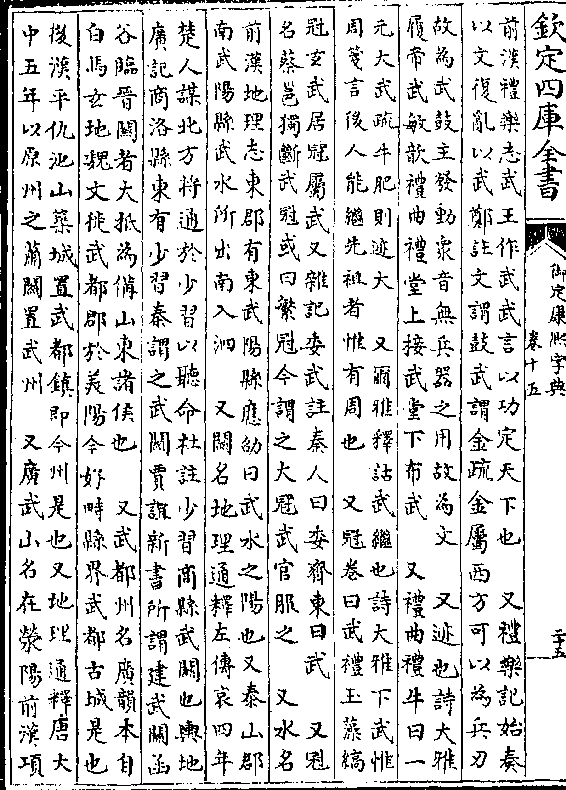 欽定四庫全書
御定康熙字典
卷十五
二十五
前漢禮樂志武王作武武言以功定天下也　又禮樂記始奏
以文復亂以武鄭註文謂鼓武謂金疏金屬西方可以為兵刃
故為武鼓主發動衆音無兵器之用故為文　又迹也詩大雅
履帝武敏歆禮曲禮堂上接武堂下布武　又禮曲禮牛曰一
元大武疏牛肥則迹大　又爾雅釋詁武繼也詩大雅下武惟
周箋言後人能繼先祖者惟有周也　又冠卷曰武禮玉藻縞
冠玄武居冠屬武又雜記委武註秦人曰委齊東曰武　又冠
名蔡邕獨斷武冠或曰繁冠今謂之大冠武官服之　又水名
前漢地理志東郡有東武陽縣應劭曰武水之陽也又泰山郡
南武陽縣武水所出南入泗　又關名地理通釋左傳哀四年
楚人謀北方將通於少習以聽命杜註少習商縣武關也輿地
廣記商洛縣東有少習秦謂之武關賈誼新書所謂建武關函
谷臨晉關者大抵為備山東諸侯也　又武都州名廣韻本自
白馬玄地魏文徙武都郡於美陽今好畤縣界武都古城是也
後漢平仇池山築城置武都鎮即今州是也又地理通釋唐大
中五年以原州之蕭關置武州　又廣武山名在滎陽前漢項